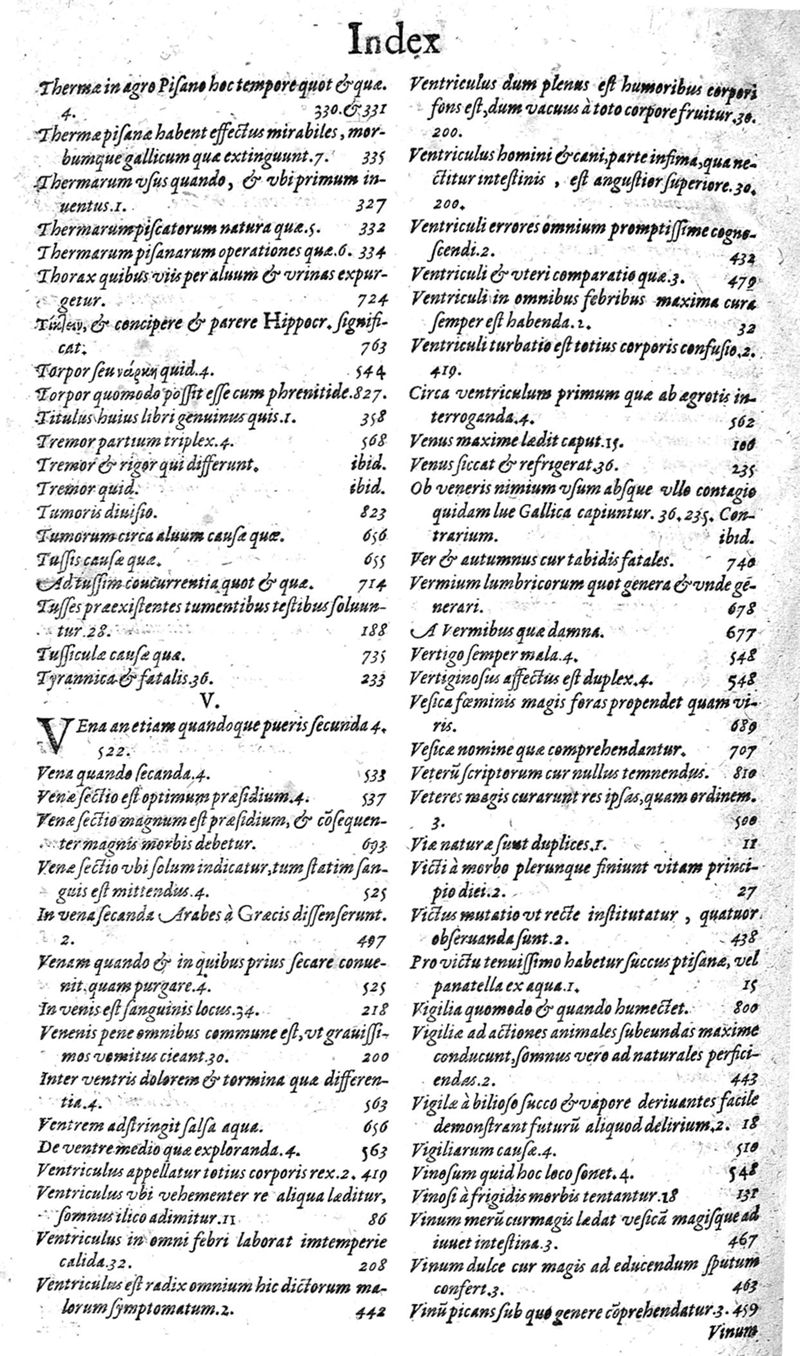 Index
Thermæ in agro Piſano hoc tempore quot & quæ.
4. 330. & 331
Thermæ piſanæ habent effectus mirabiles, mor-
bumque gallicum quæ extinguunt. 7. 335
Thermarum vſus quando, & vbi primum in-
uentus. 1. 327
Thermarum piſcatorum natura quæ. 5. 332
Thermarum piſanarum operationes quæ. 6. 334
Thorax quibus viis per aluum & vrinas expur-
getur. 724
& concipere & parere Hippocr. ſignifi-
cat. 763
Torpor ſeu νάρκη quid. 4. 544
Torpor quomodo poſſit eſſe cum phrenitide. 827.
Titulus huius libri genuinus quis. 1. 358
Tremor partium triplex. 4. 568
Tremor & rigor qui differunt. ibid.
Tremor quid. ibid.
Tumoris diuiſio. 823
Tumorum circa aluum cauſæ quæ. 656
Tuſſis cauſæ quæ. 655
Ad tuſſim concurrentia quot & quæ. 714
Tuſſes præexiſtentes tumentibus teſtibus ſoluun-
tur. 28. 188
Tuſſiculæ cauſæ quæ. 735
Tyrannica & fatalis. 36. 233
V.
VEna an etiam quandoque pueris ſecunda 4.
522.
Vena quando ſecanda. 4. 533
Venæ ſectio eſt optimum præſidium. 4. 537
Venæ ſectio magnum eſt præſidium, & cõſequen-
ter magnis morbis debetur. 693
Venæ ſectio vbi ſolum indicatur, tum ſtatim ſan-
guis eſt mittendus. 4. 525
In vena ſecanda Arabes à Græcis diſſenſerunt.
2. 497
Venam quando & in quibus prius ſecare conue-
nit, quam purgare. 4. 525
In venis eſt ſanguinis locus. 34. 218
Venenis pene omnibus commune eſt, vt grauiſſi-
mos vomitus cieant. 30. 200
Inter ventris dolorem & tormina quæ differen-
tia. 4. 563
Ventrem adſtringit ſalſa aqua. 656
De ventre medio quæ exploranda. 4. 563
Ventriculus appellatur totius corporis rex. 2. 419
Ventriculus vbi vehementer re aliqua læditur,
ſomnus ilico adimitur. 11 86
Ventriculus in omni febri laborat imtemperie
calida. 32. 208
Ventriculus eſt radix omnium hic dictorum ma-
lorum ſymptomatum. 2. 442
Ventriculus dum plenus eſt humoribus corpori
fons eſt, dum vacuus à toto corpore fruitur. 30.
200.
Ventriculus homini & cani, parte infima, qua ne-
ctitur inteſtinis, eſt anguſtior ſuperiore. 30.
200.
Ventriculi errores omnium promptiſſime cogno-
ſcendi. 2. 432
Ventriculi & vteri comparatio quæ. 3. 479
Ventriculi in omnibus febribus maxima cura
ſemper eſt habenda. 2. 32
Ventriculi turbatio eſt totius corporis confuſio. 2.
419.
Circa ventriculum primum quæ ab ægrotis in-
terroganda. 4. 562
Venus maxime lædit caput. 15. 106
Venus ſiccat & refrigerat. 36. 235
Ob veneris nimium vſum abſque vllo contagio
quidam lue Gallica capiuntur. 36. 235. Con-
trarium. ibid.
Ver & autumnus cur tabidis fatales. 740
Vermium lumbricorum quot genera & vnde gẽ-
nerari. 678
A Vermibus quæ damna. 677
Vertigo ſemper mala. 4. 548
Vertiginoſus affectus eſt duplex. 4. 548
Veſica fœminis magis foras propendet quam vi-
ris. 689
Veſicæ nomine quæ comprehendantur. 707
Veterũ ſcriptorum cur nullus temnendus. 810
Veteres magis curarunt res ipſas, quam ordinem.
3. 500
Viæ naturæ ſunt duplices. 1. 11
Victi à morbo plerunque finiunt vitam princi-
pio diei. 2. 27
Victus mutatio vt recte inſtitutatur, quatuor
obſeruanda ſunt. 2. 438
Pro victu tenuiſſimo habetur ſuccus ptiſanæ, vel
panatella ex aqua. 1. 15
Vigilia quomodo & quando humectet. 800
Vigiliæ ad actiones animales ſubeundas maxime
conducunt, ſomnus vero ad naturales perfici-
endas. 2. 443
Vigilæ à bilioſo ſucco & vapore deriuantes facile
demonſtrant futurũ aliquod delirium. 2. 18
Vigiliarum cauſæ. 4. 510
Vinoſum quid hoc loco ſonet. 4. 548
Vinoſi à frigidis morbis tentantur. 18 131
Vinum merũ cur magis lædat veſicã magiſque ad
iuuet inteſtina. 3. 467
Vinum dulce cur magis ad educendum ſputum
confert. 3. 463
Vinũ picans ſub quo genere cõprehendatur. 3. 459
Vinum